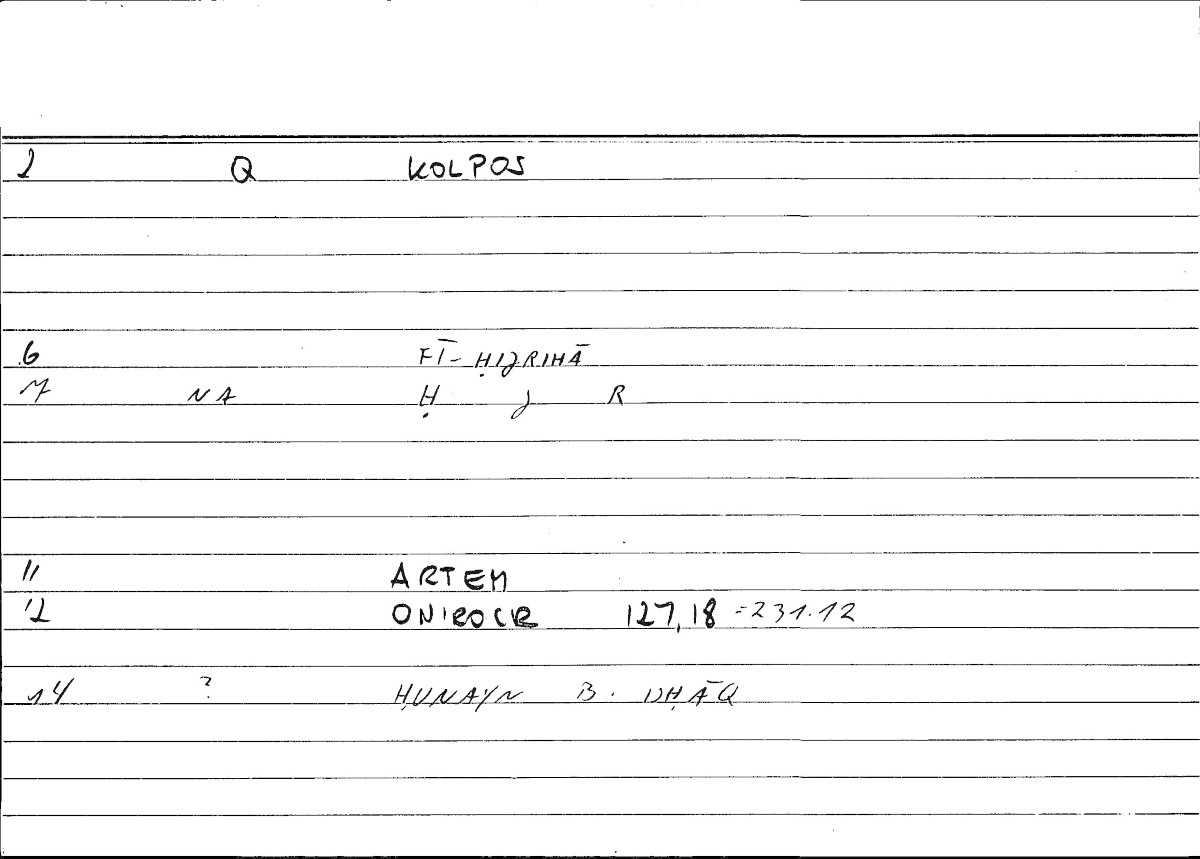 2 Q KOLPOS
6 FĪ-ḤIJRIHĀ
7 NA Ḥ J R
11 ARTEM
12 ONIROCR 127,18 =231.12
14 ? ḤUNAYN B. ISḤĀQ